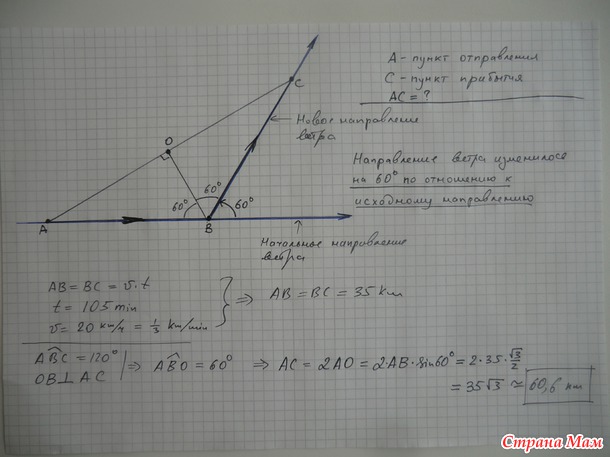 A - пункт отправления
C - пункт прибытия
AC = ?
C
Новое направление
ветра
O
Направление ветра изменилось
на 60° по отношению к
исходному направлению
60°
60°
60°
A
B
Начальное направление
ветра
AB = BC = v·t
t = 105 min
v = 20 km/ч = 1/3 km/min
⇒ AB = BC = 35 km
ABC = 120°
OB ⊥ AC
⇒ ABO = 60° ⇒ AC = 2AO = 2AB·sin60° = 2·35·√3/2
= 35√3 ≈ 60,6 km
Страна Мам